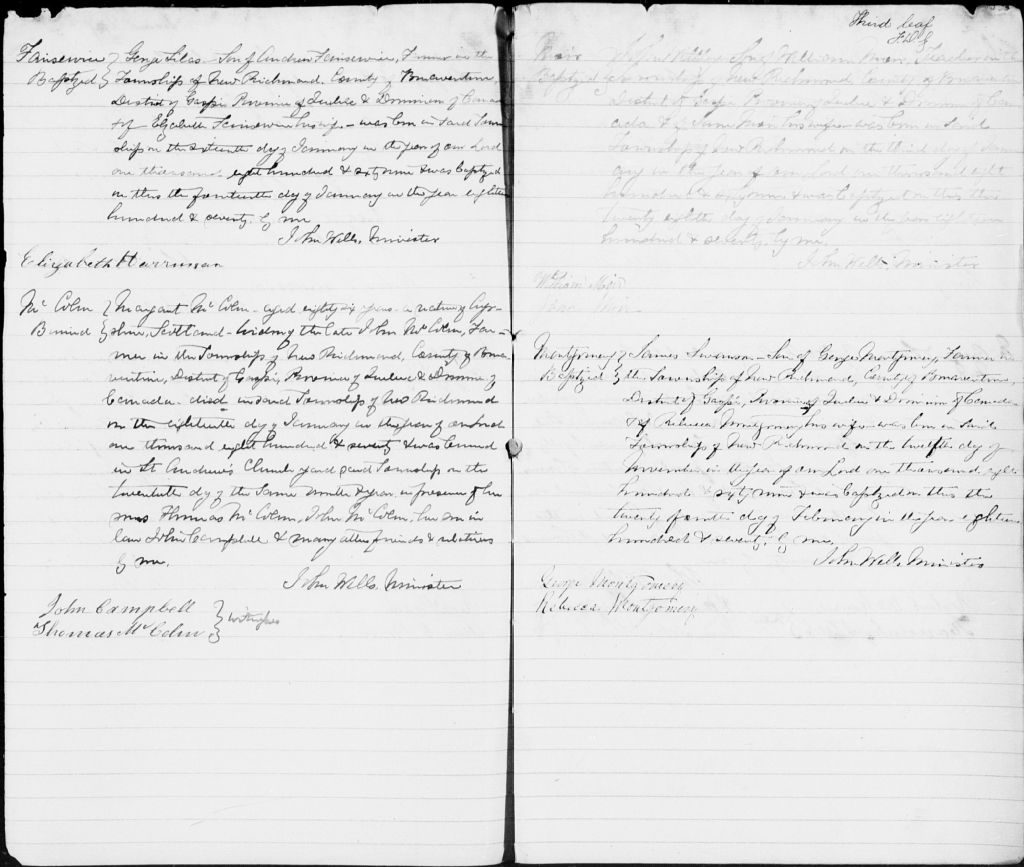 Fairservice } George Silas - Son of Andrew Fairservice, Farmer in the
Baptized } Township of New Richmond, County of Bonaventure
District of Gaspé Province of Quebec & Dominion of Canada
& of Elizabeth Fairservice his wife - was born in said Town
ship on the sixteenth day of January in the year of our Lord
one thousand eight hundred & sixty nine & was Baptized
on this the fourteenth day of January in the year eighteen
hundred & seventy. By me
John Wells, Minister
Elizabeth Harriman
McColm } Margaret McColm - aged eighty six years - a native of Ayr-
Buried } shire, Scotland - widow of the late John McColm, Far-
mer in the Township of New Richmond, County of Bona
venture, District of Gaspé, Province of Quebec & Dominion of
Canada - died in said Township of New Richmond
on the eighteenth day of January in the year of our Lord
one thousand eight hundred & seventy & was buried
in St Andrew's Church yard said Township on the
twentieth day of the same month & year in presence of her
sons Thomas McColm, John McColm, her son in
law John Campbell & many other friends & relatives
By me,
John Wells, Minister
John Campbell
Thomas McColm } Witnesses
Third leaf
Muir William Muir, Teacher in the
Baptized } Township of New Richmond County of Bonaventure
District of Gaspé Province of Quebec & Dominion of Can
ada & of Jane Muir his wife was born in said
Township of New Richmond on the third day of
in the year of our Lord one thousand eight
hundred & sixty nine & was Baptized on this the
twenty eighth day of January in the year eighteen
hundred & seventy by me,
John Wells, Minister
William Muir
Jane Muir
Montgomery } James Swanson - Son of George Montgomery, Farmer in
Baptized } the Township of New Richmond, County of Bonaventure,
District of Gaspé, Province of Quebec & Dominion of Canada
& of Rebecca Montgomery his wife was born in said
Township of New Richmond on the twelfth day of
November in the year of our Lord one thousand eight
hundred & sixty nine & was Baptized on this the
twenty fourth day of February in the year eighteen
hundred & seventy. By me,
John Wells, Minister
George Montgomery
Rebecca Montgomery